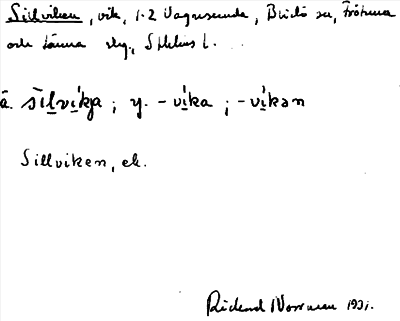 Sillviken, vik, 1.2 Vagnsunda, Blidö sn, Frötuna
och Länna skg, Sthlms l.
ä. silvika; y. -vika; -vikan
Sillviken, ek.
Rickard Norrman 1931.